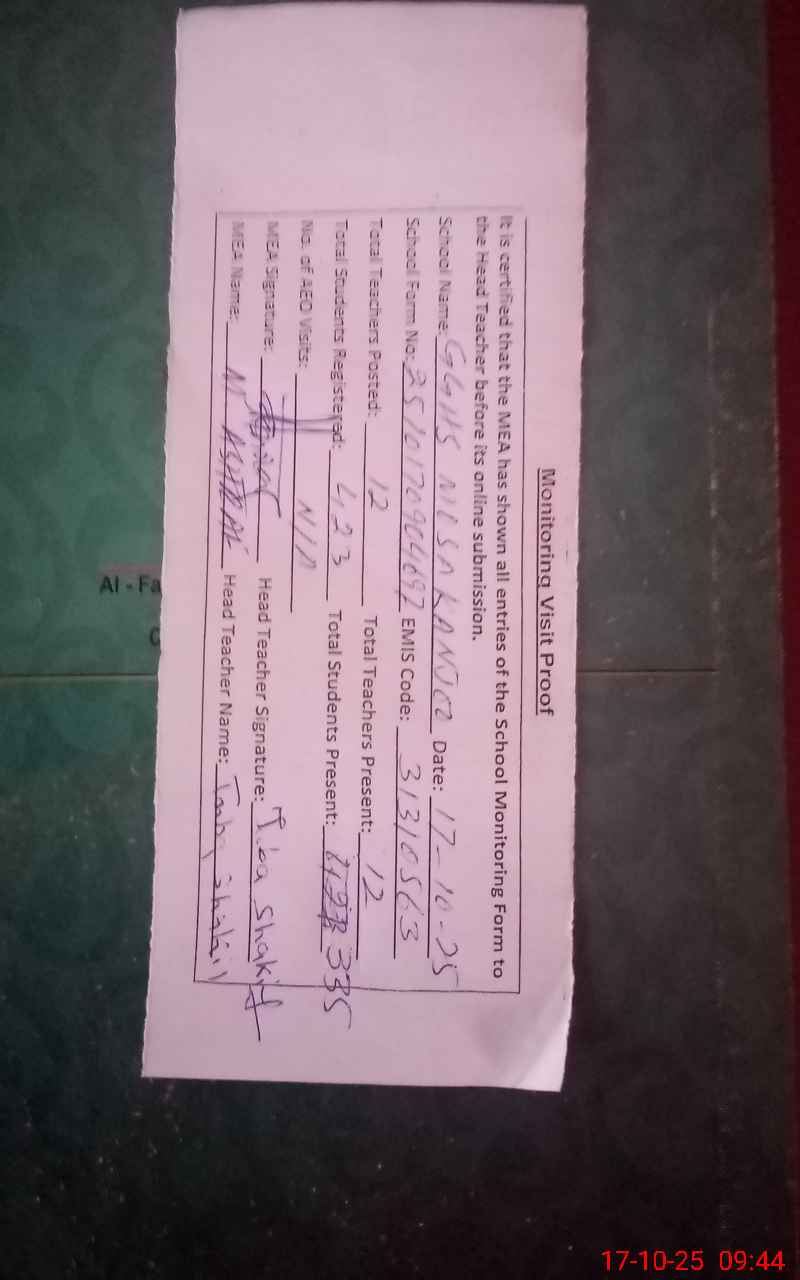 Monitoring Visit Proof
It is certified that the MEA has shown all entries of the School Monitoring Form to
the Head Teacher before its online submission.
School Name: Date: 17-10-25
School Form No: EMIS Code: 31310563
Total Teachers Posted: 12 Total Teachers Present: 12
Total Students Registered: 423 Total Students Present: 335
No. of AEO Visits:
MEA Signature: Head Teacher Signature:
MEA Name: M Head Teacher Name:
Al - Fa
17-10-25 09:44